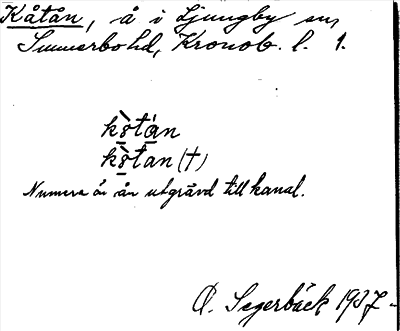 Kåtån, å i Ljungby sn,
Sunnerbo hd, Kronob. l. 1.
kòtán
kòtan (†)
Numera är ån utgrävd till kanal.
O. Segerbäck 1937